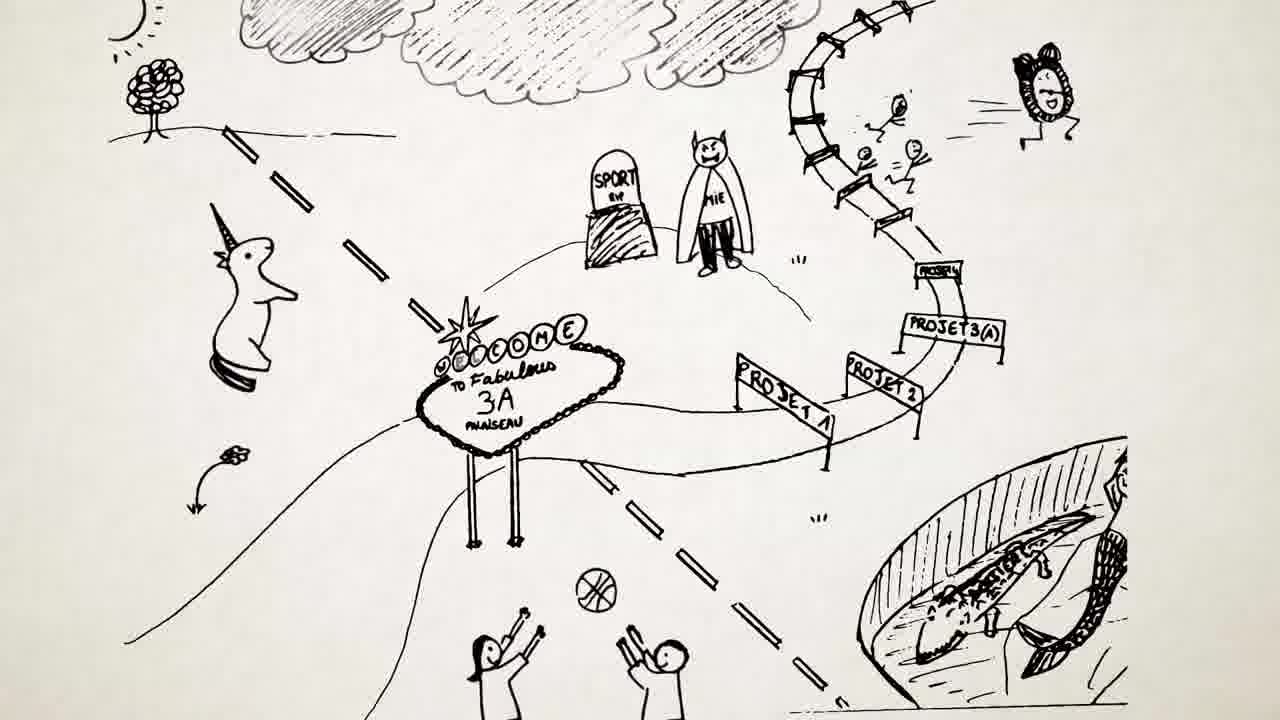 SPORT
RIP
MIE
WELCOME
TO Fabulous
3A
PALAISEAU
PROJET 3(A)
PROJET 2
PROJET 1